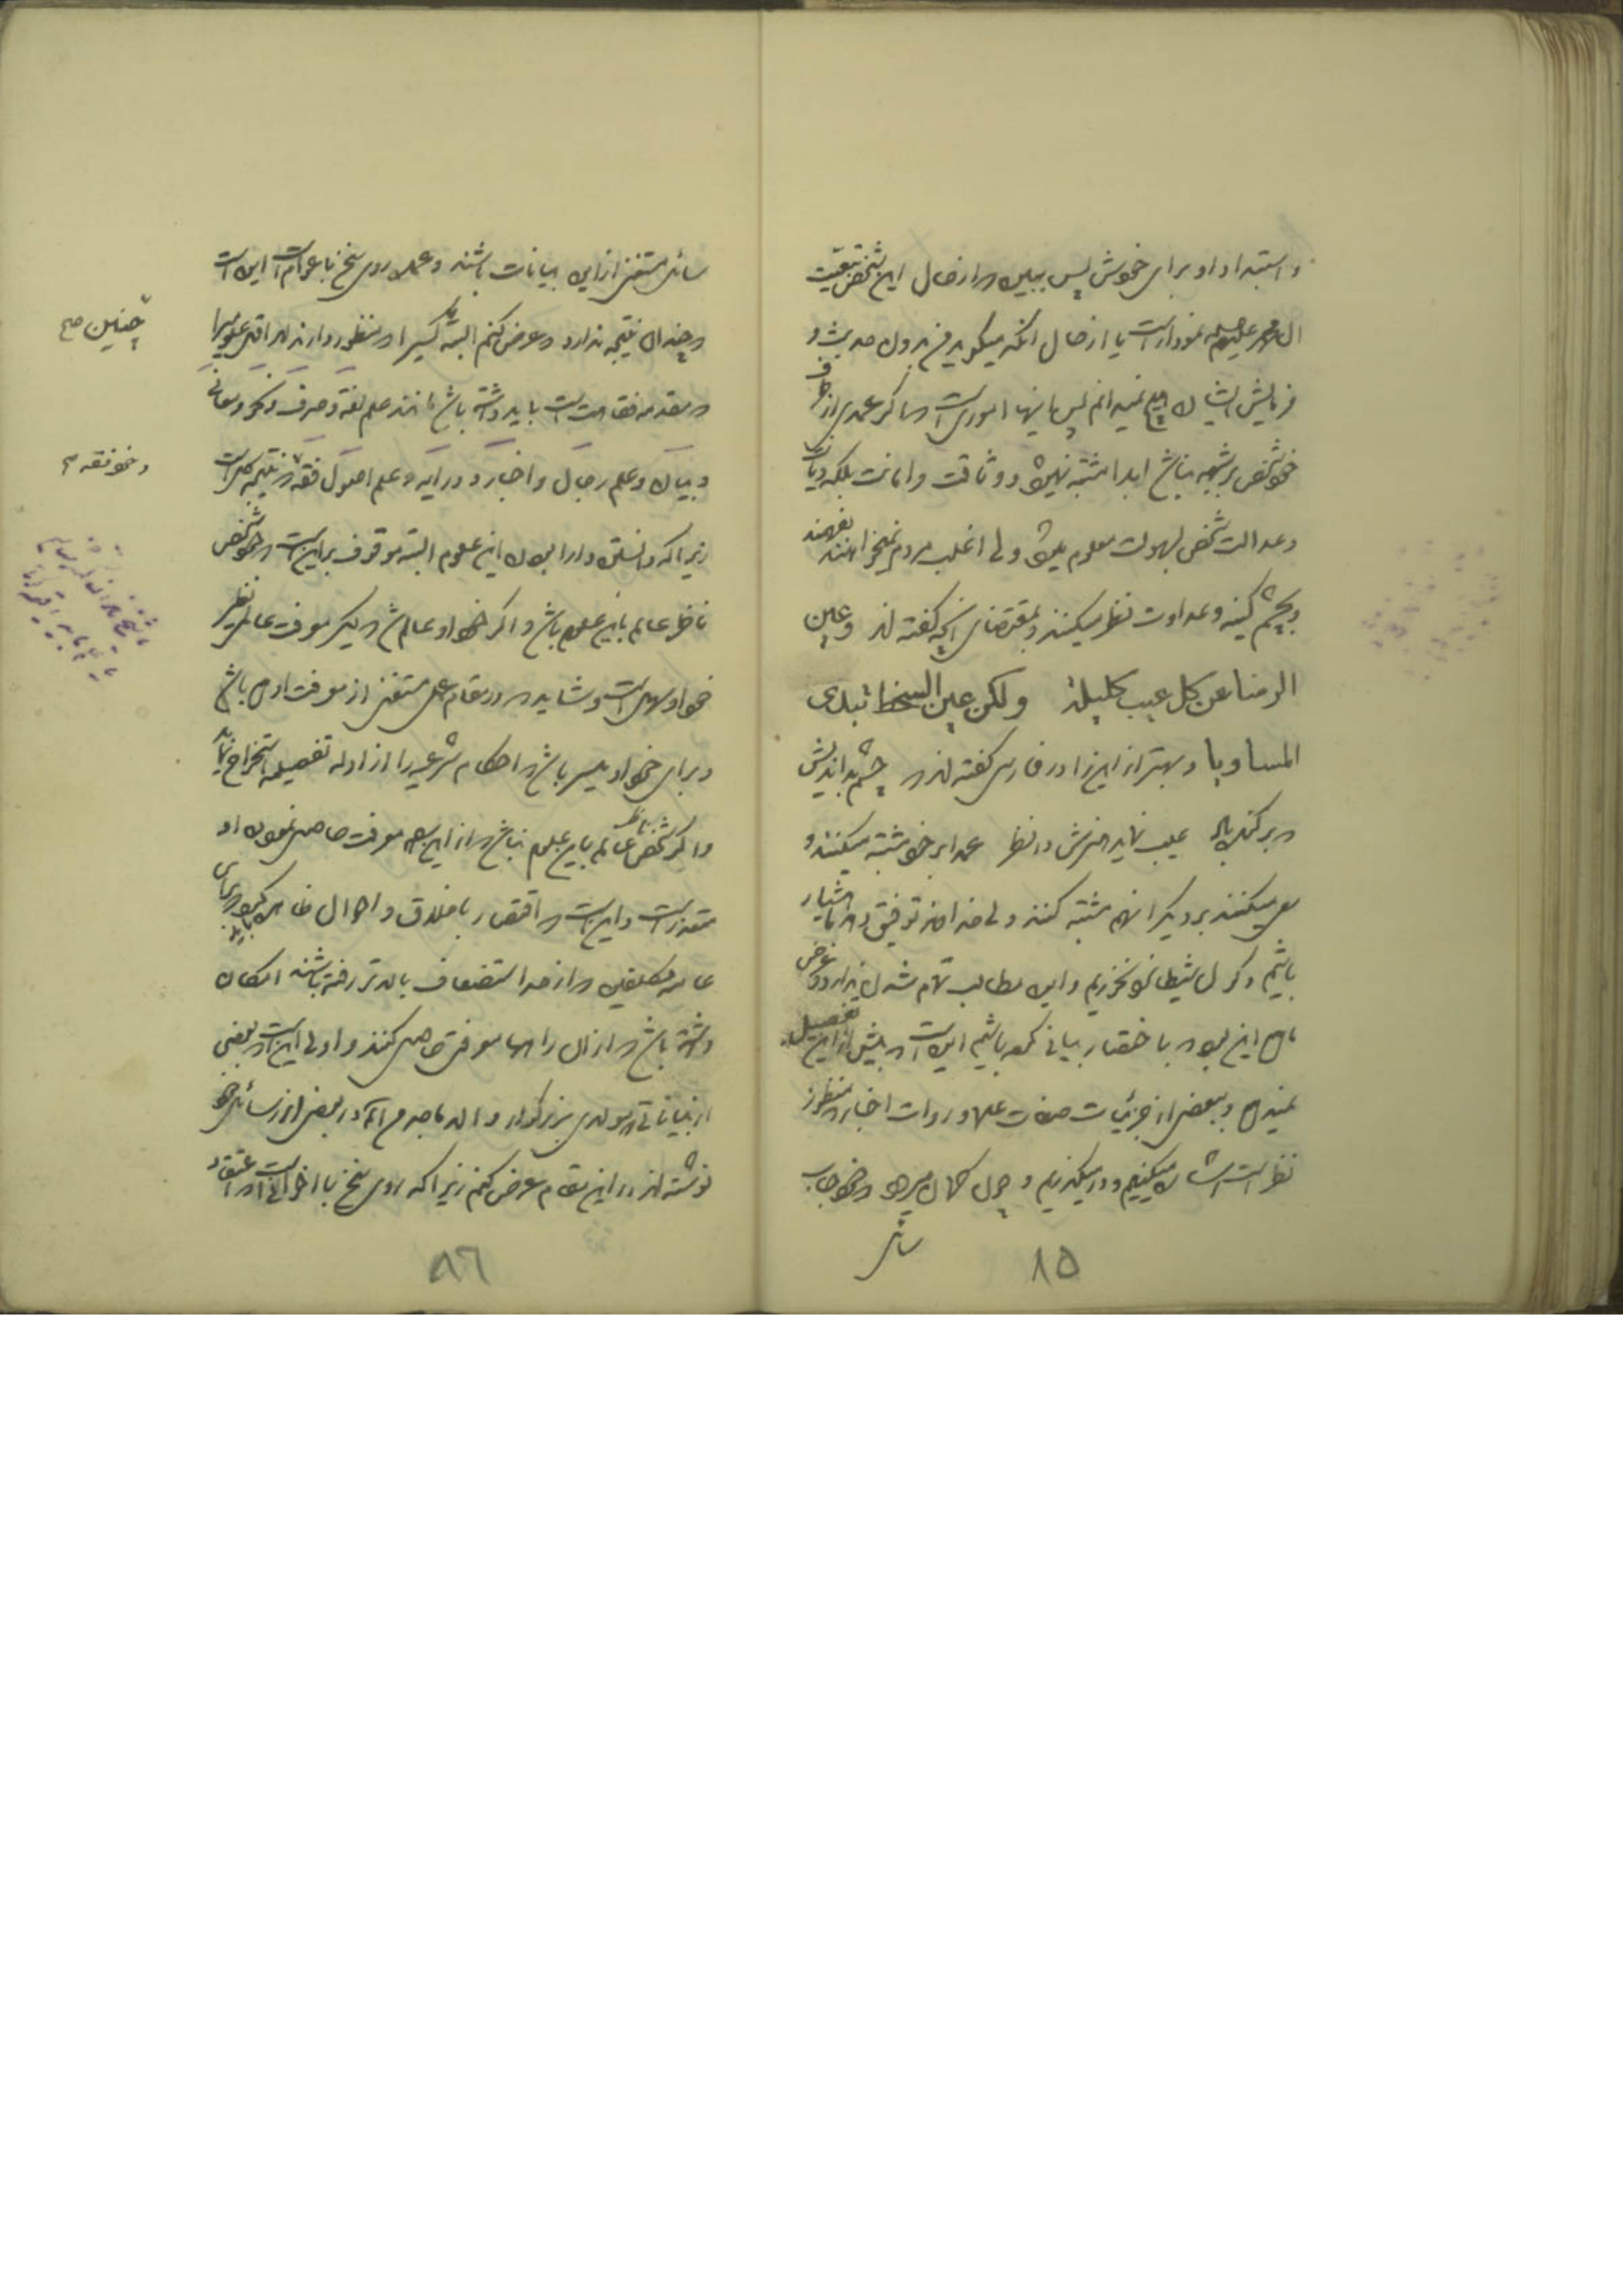 و استبداد او برای خودش پس ببین که از خصال این شخص تبعیت
آل محمد علیهم نمودار است یا از خصال آنکه میگوید من بدون حدیث و
فرمایش ایشان هیچ نمیدانم پس اینها اموری است که اگر عمدی از طرف
خود شخص بر شبهه نباشد ابدا مشتبه نمیشود وثاقت و امانت بلکه دیانت
و عدالت شخص بسهولت معلوم میشود ولی اغلب مردم نمیخواهند بفهمند
و بچشم کینه و عداوت نظر میکنند و بمقتضای آنچه گفته اند وعین
الرضا عن کل عیب کلیلة ولکن عین السخط تبدی
المساویا و بهتر از این را در فارسی گفته اند که چشم بداندیش
که برکنده باد عیب نماید هنرش در نظر عمدا بر خود مشتبه میکنند و
سعی میکنند بر دیگران هم مشتبه کنند ولی خدا توفیق دهد که هشیار
باشیم و گول شیطان را نخوریم و این مطالب تمام شدن ندارد و غرض
ما هم این بود که باختصار بیانی کرده باشیم این است که بیش از این تفصیل
نمیدهم و ببعض از جزئیات صفات علما و روات اخبار که منظور
نظر است اشاره میکنیم و در میگذریم و چون گمان میرود که خود جناب
سائل
۸۵
سائل مستغنی از این بیانات باشند و عمده روی سخن با عوام است این است
که چندان نتیجه ندارد که عرض کنم البته یک کسی را که منظور دارند که اقلا علومی را
که مقدمه فقاهت است باید داشته باشد مانند علم لغة و صرف و نحو و معانی
و بیان و علم رجال و اخبار و درایه و علم اصول فقه که نتیجه کل است
زیرا که دانستن دارا بودن این علوم البته موقوف بر این است که خود شخص
ناظر عالم باین علوم باشد و اگر خود او عالم شد دیگر معرفت عالم بنظر
خود او سهل است و شاید که در مقام عمل مستغنی از معرفت او هم باشد
و برای خود او میسر باشد که احکام شرعیه را از ادله تفصیلیه استخراج نماید
و اگر شخص ناظر عالم باین علوم نباشد که از این راه معرفت حاصل نمودن او
متعذر است و این است که اقتصار باخلاق و احوال ظاهره
عامه مکلفین که از حد استضعاف بالاتر رفته باشند امکان
داشته باشد که از آن راهها معرفتی حاصل کنند و اولی این است که بعضی
از بیاناتی که مولای بزرگوار والد ماجدم اع در بعض از رسائل خود
نوشته اند در این مقام عرض کنم زیرا که روی سخن با اخوانی است که اعتقاد
چنین صح
و خود فقه صح
۸۶